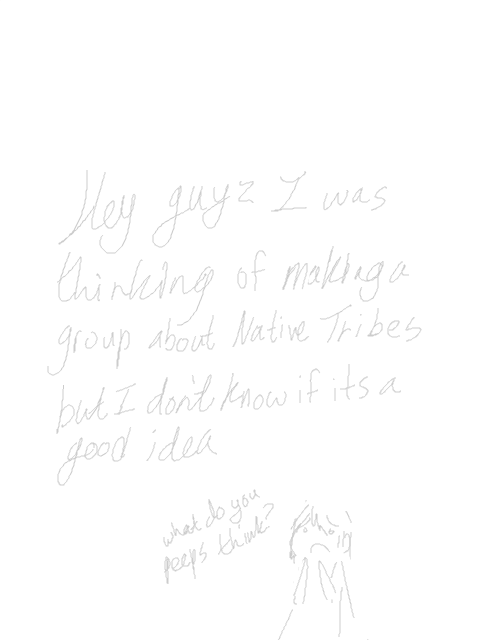 Hey guyz I was
thinking of making a
group about Native Tribes
but I don't know if its a
good idea
what do you
peeps think?